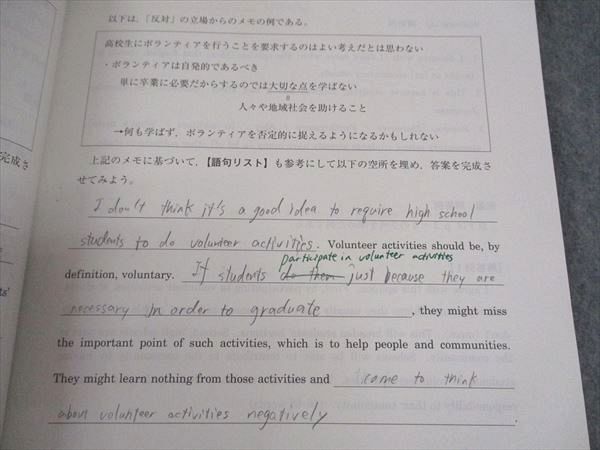 以下は,「反対」の立場からのメモの例である。
高校生にボランティアを行うことを要求するのはよい考えだとは思わない
・ボランティアは自発的であるべき
単に卒業に必要だからするのでは大切な点を学ばない
人々や地域社会を助けること
→何も学ばず,ボランティアを否定的に捉えるようになるかもしれない
完成さ
上記のメモに基づいて,【語句リスト】も参考にして以下の空所を埋め,答案を完成さ
せてみよう。
I don't think it's a good idea to require high school
students to do volunteer activities. Volunteer activities should be, by
participate in volunteer activities
definition, voluntary. If students do them just because they are
necessary in order to graduate, they might miss
the important point of such activities, which is to help people and communities.
They might learn nothing from those activities and come to think
about volunteer activities negatively.